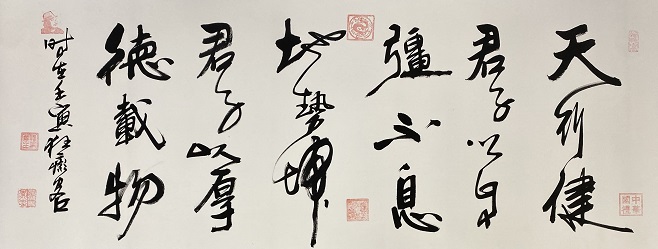 天行健
君子以自
彊不息
地勢坤
君子以厚
德載物
时在壬寅